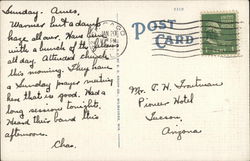 Sunday. Ames.
Warmer but a damp
haze all over. Have been
with a bunch of the fellows
all day. Attended church
this morning. They have
a Sunday prayer meeting
here that is good. Had a
long session tonight.
Heard this band this
afternoon.
Chas.
JAN 20
POST
CARD
Mr. P. H. Troutman
Pioneer Hotel
Tucson,
Arizona